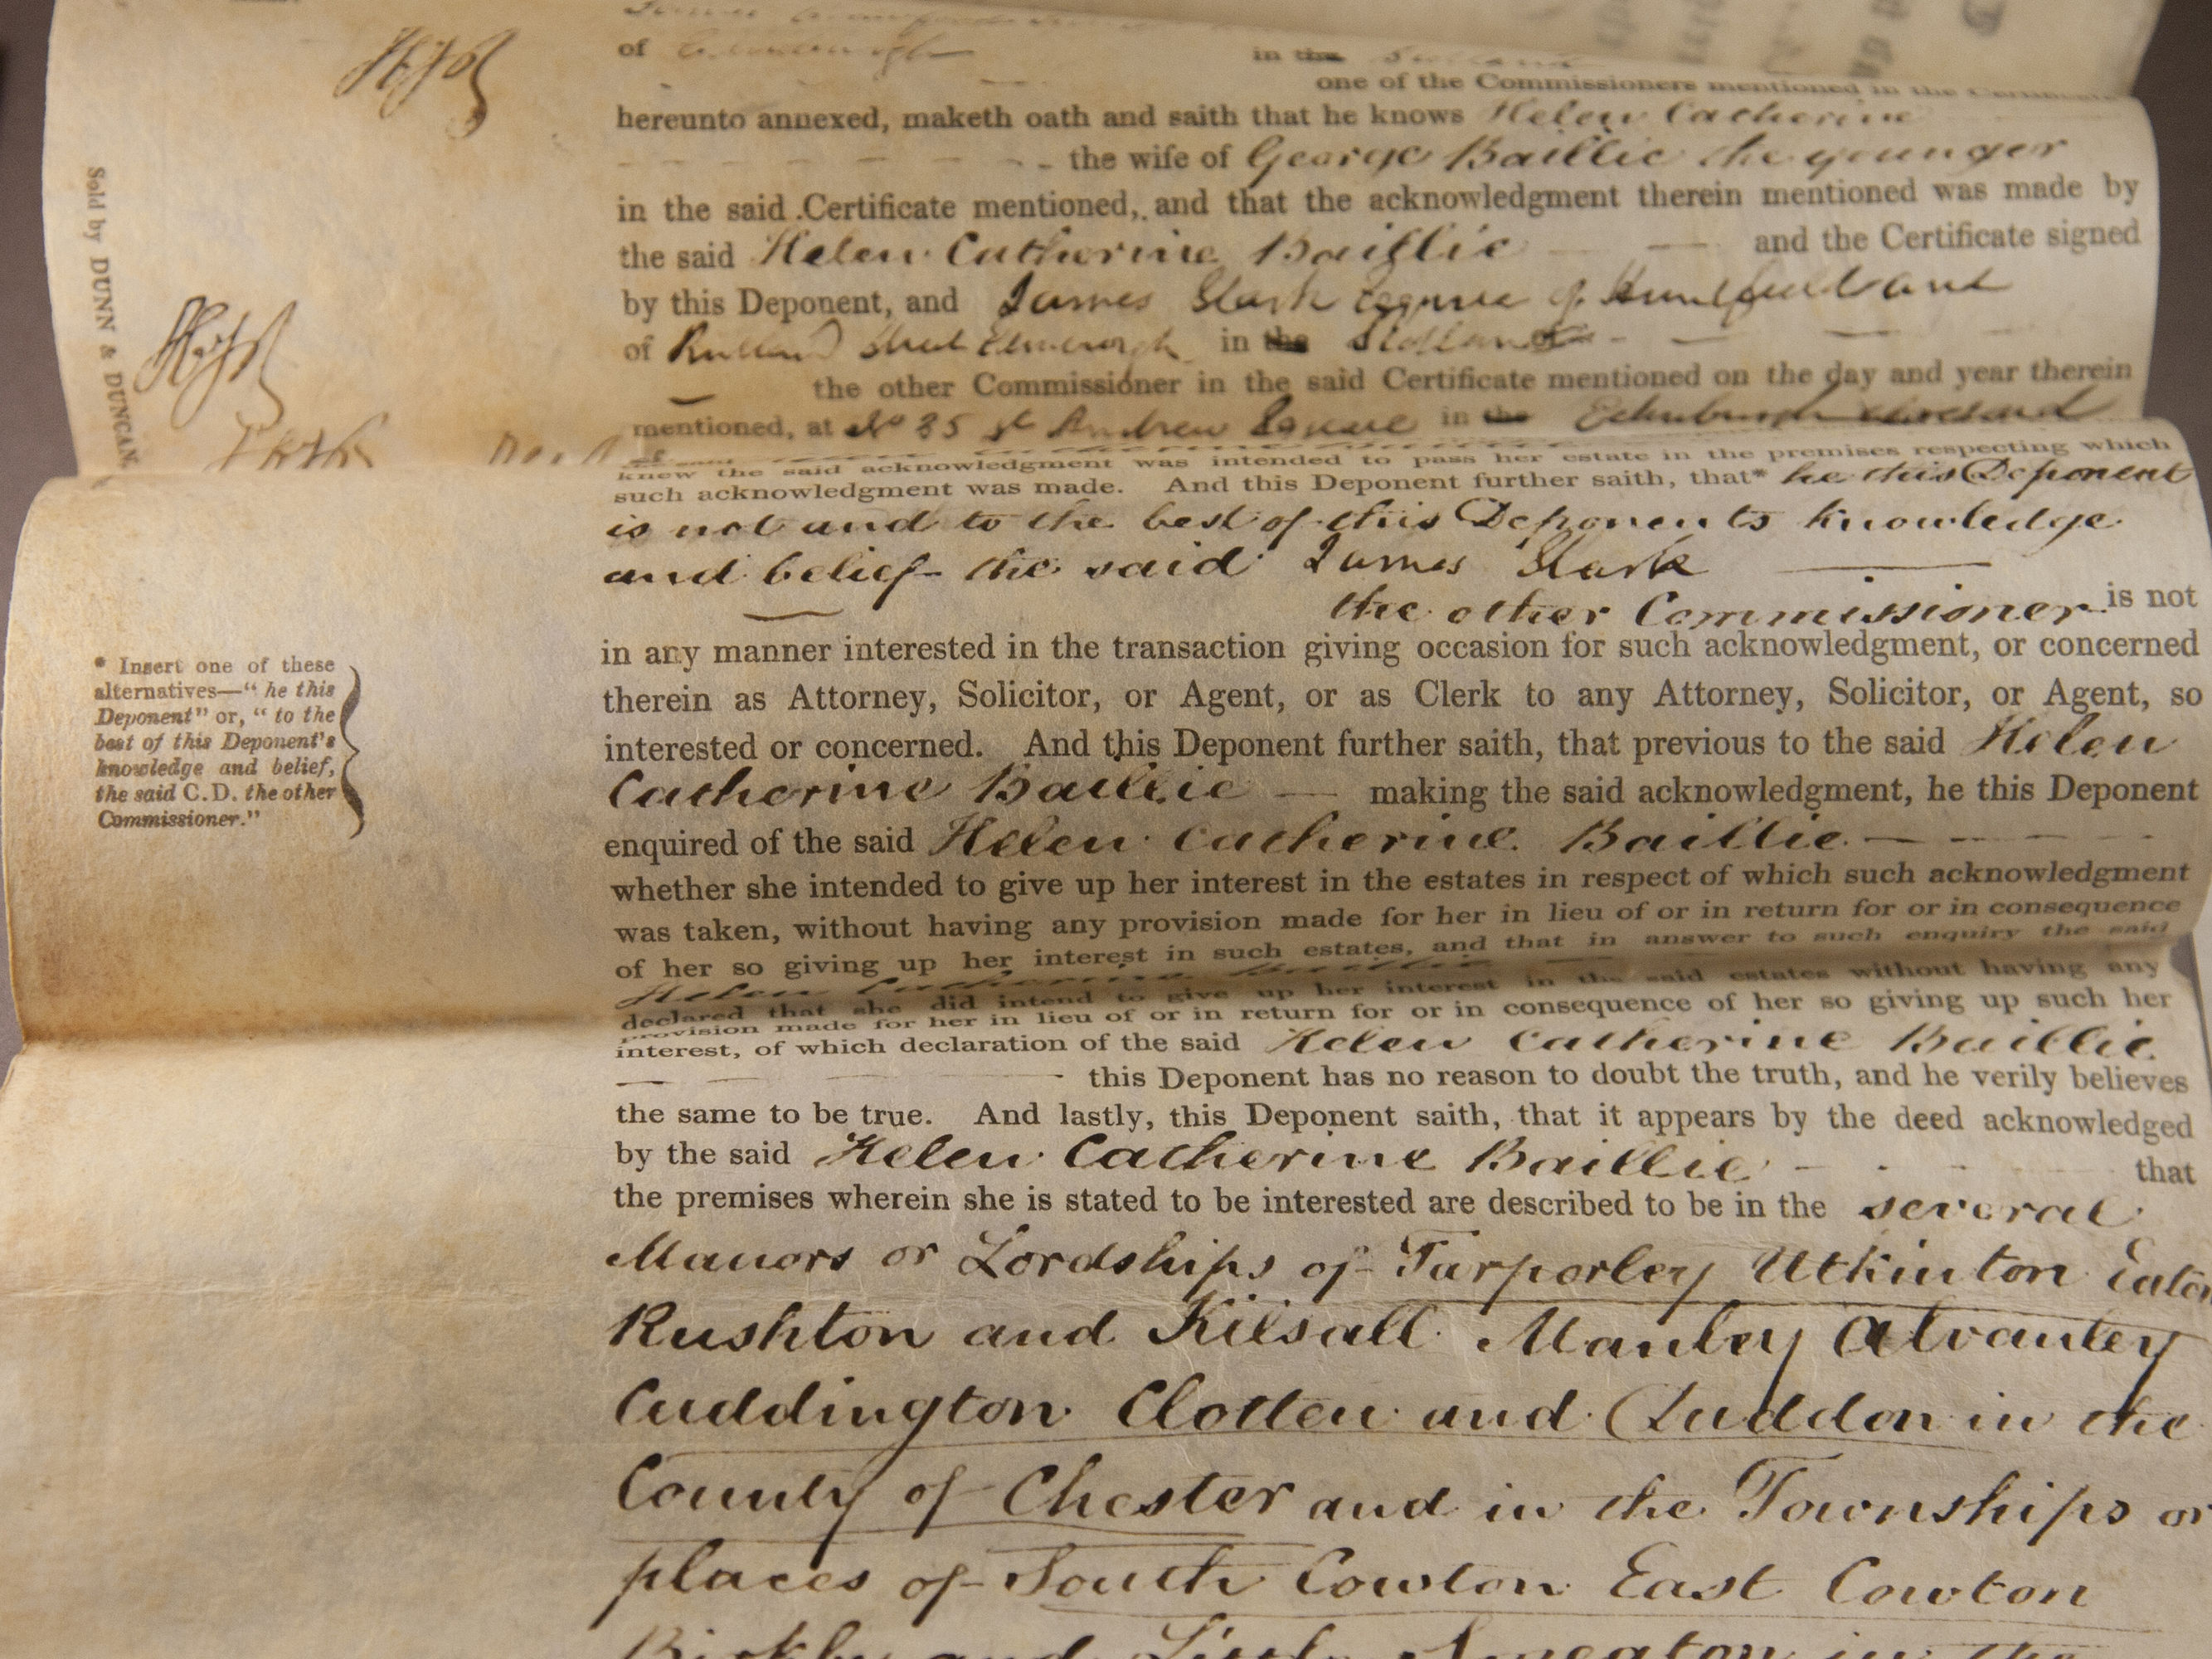 of in the
one of the Commissioners mentioned in the Certificate
hereunto annexed, maketh oath and saith that he knows Helen Catherine
the wife of George Baillie the younger
in the said Certificate mentioned, and that the acknowledgment therein mentioned was made by
the said Helen Catherine Baillie and the Certificate signed
by this Deponent, and James Stark Esquire of
of Rutland Street Edinburgh in the Scotland
the other Commissioner in the said Certificate mentioned on the day and year therein
mentioned, at No 35 St Andrew Square in the Edinburgh
knew the said acknowledgment was intended to pass her estate in the premises respecting which
such acknowledgment was made. And this Deponent further saith, that* he this Deponent
is not and to the best of this Deponents knowledge
and belief the said James Stark
the other Commissioner is not
in any manner interested in the transaction giving occasion for such acknowledgment, or concerned
therein as Attorney, Solicitor, or Agent, or as Clerk to any Attorney, Solicitor, or Agent, so
interested or concerned. And this Deponent further saith, that previous to the said Helen
Catherine Baillie — making the said acknowledgment, he this Deponent
enquired of the said Helen Catherine Baillie
whether she intended to give up her interest in the estates in respect of which such acknowledgment
was taken, without having any provision made for her in lieu of or in return for or in consequence
of her so giving up her interest in such estates, and that in answer to such enquiry the said
Helen Catherine Baillie
declared that she did intend to give up her interest in the said estates without having any
provision made for her in lieu of or in return for or in consequence of her so giving up such her
interest, of which declaration of the said Helen Catherine Baillie
this Deponent has no reason to doubt the truth, and he verily believes
the same to be true. And lastly, this Deponent saith, that it appears by the deed acknowledged
by the said Helen Catherine Baillie that
the premises wherein she is stated to be interested are described to be in the several
Manors or Lordships of Tarporley Utkinton Eaton
Rushton and Kilsall Manley Alvanley
Cuddington Clotten and Duddon in the
County of Chester and in the Townships or
places of South Cowton East Cowton
Birkby and Little Smeaton in the
Sold by DUNN & DUNCAN,
* Insert one of these
alternatives—"he this
Deponent" or, "to the
best of this Deponent's
knowledge and belief,
the said C.D. the other
Commissioner."